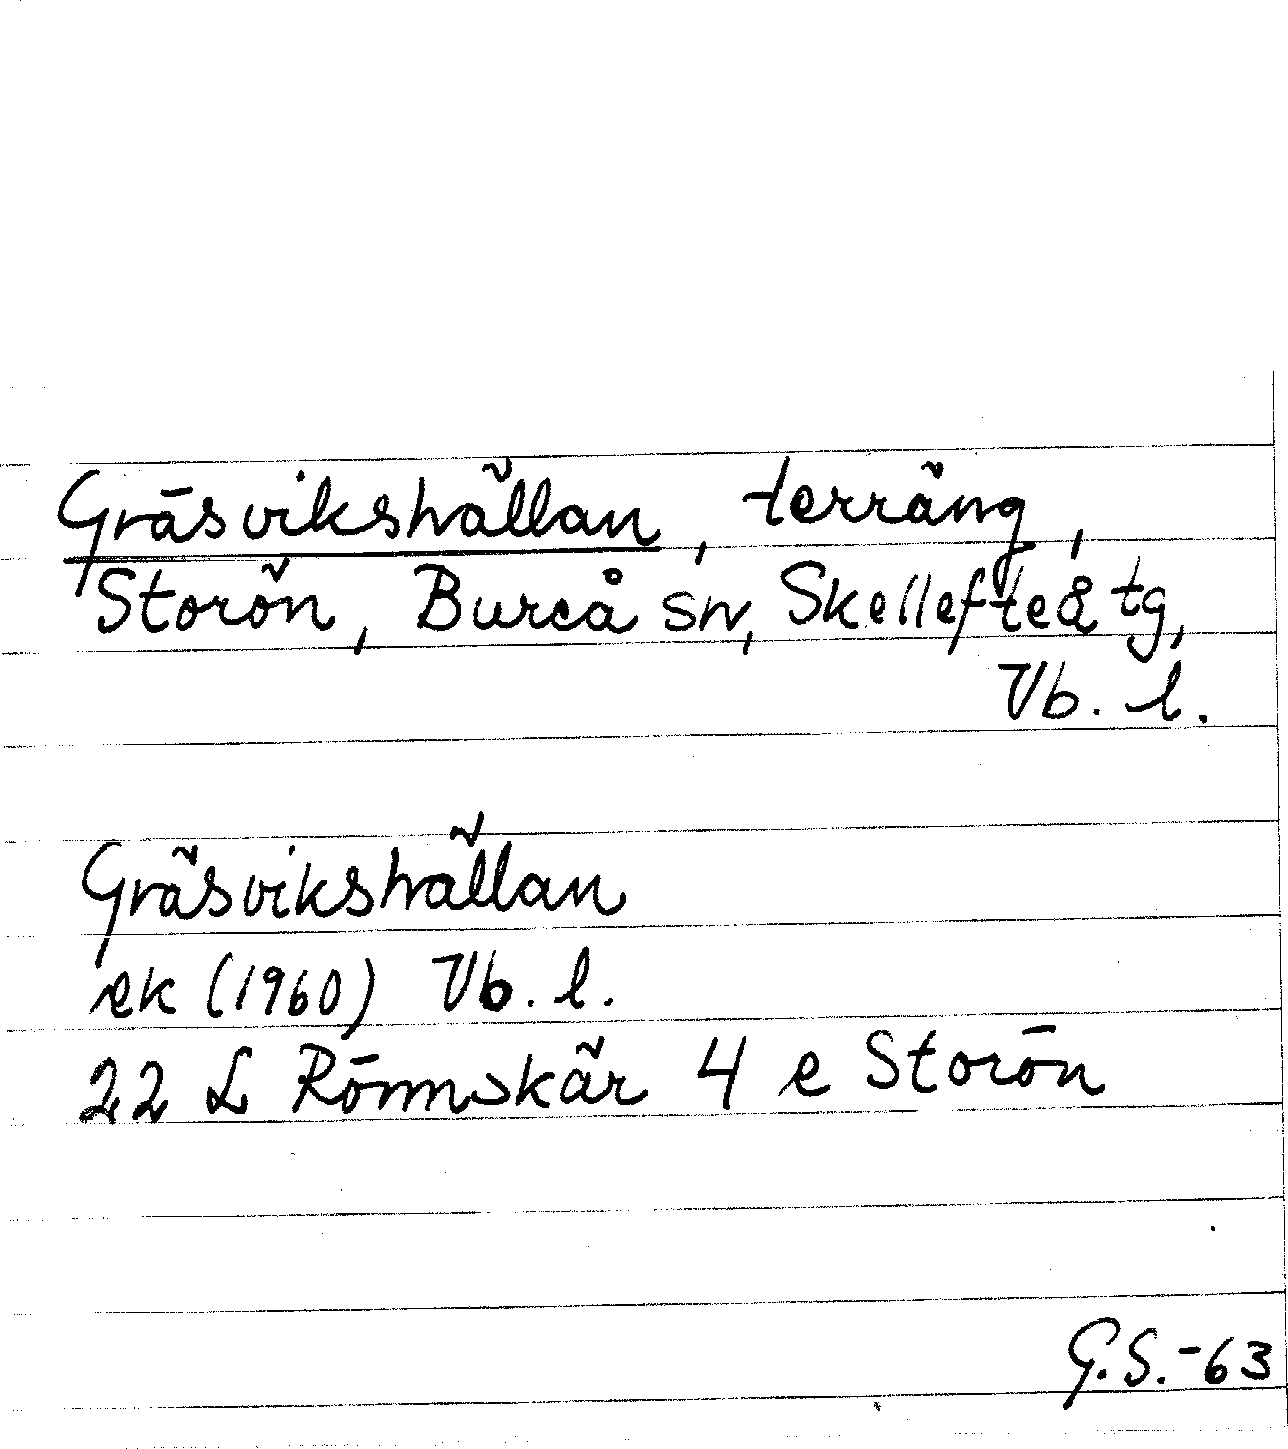 Gräsvikshällan, terräng,
Storön, Bureå sn, Skellefteå tg,
Vb. l.
Gräsvikshällan
ek (1960) Vb. l.
22 L Rönnskär 4 e Storön
G.S.-63